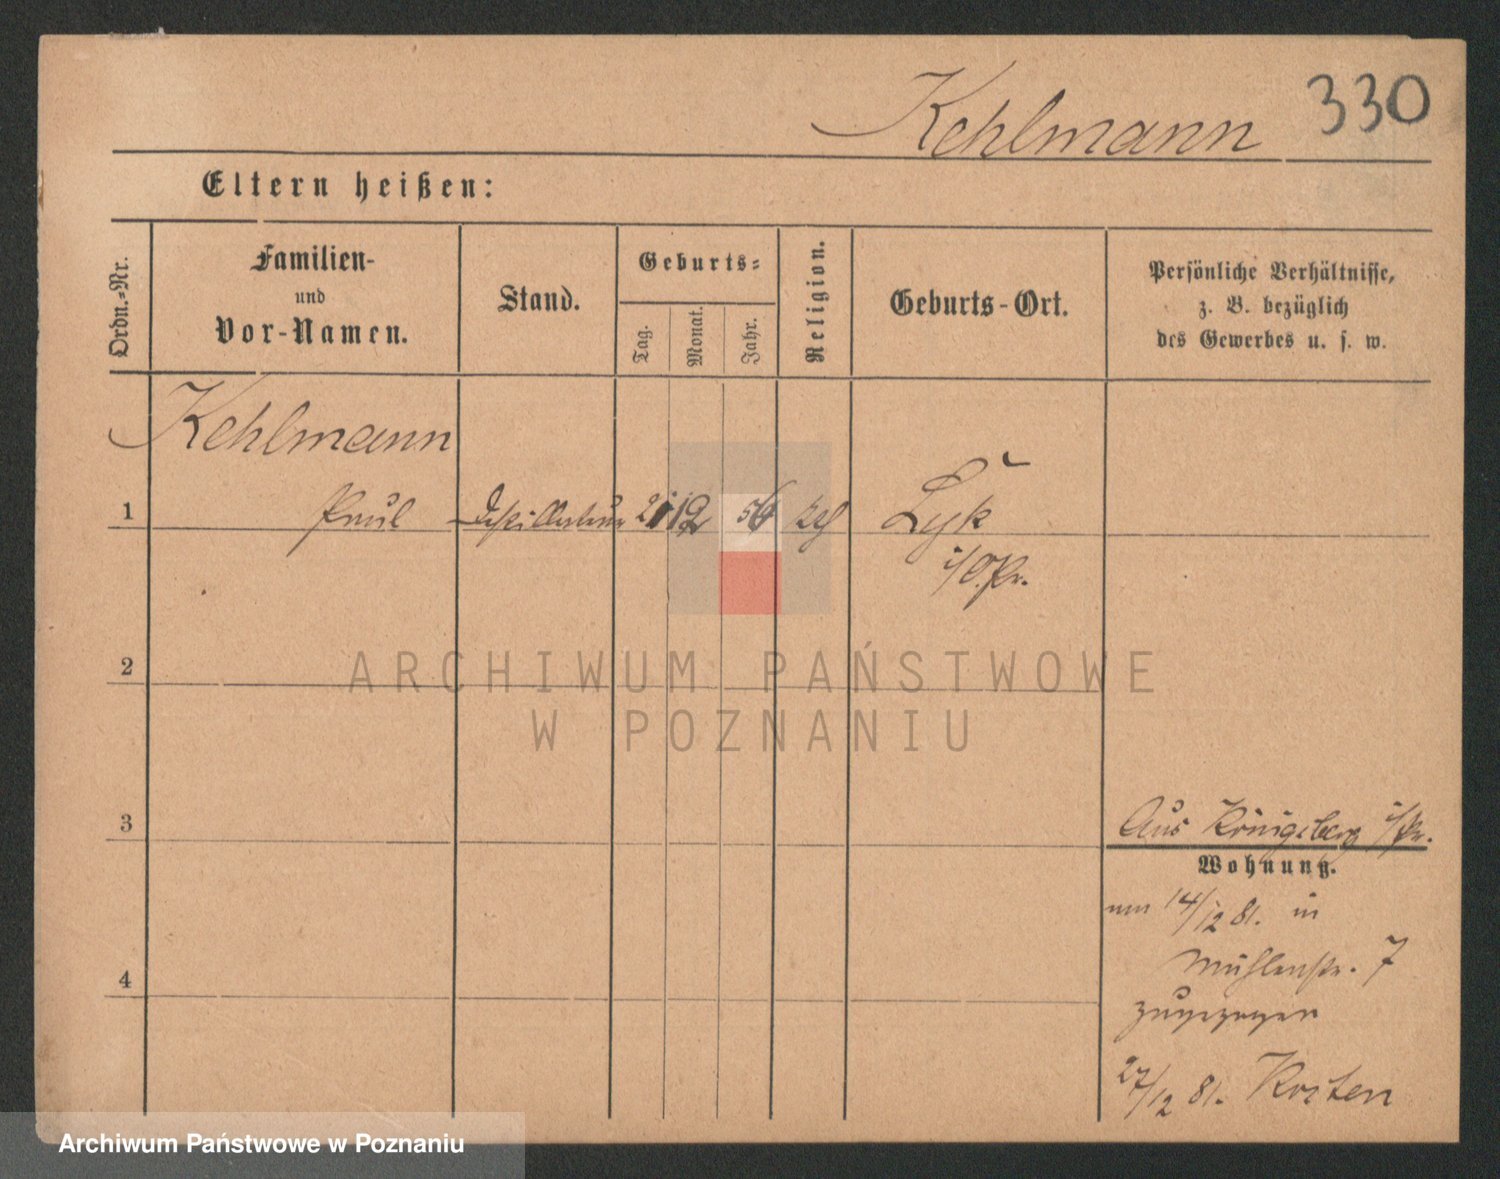 Kehlmann 330
Eltern heißen:
Ordn.-Nr.
Familien-
und
Vor-Namen.
Stand.
Geburts-
Tag.
Monat.
Jahr.
Religion.
Geburts-Ort.
Persönliche Verhältnisse,
z. B. bezüglich
des Gewerbes u. s. w.
Kehlmann
1 Paul Destillateur 12 56 Lyk
i/O.Pr.
2
ARCHIWUM PAŃSTWOWE
W POZNANIU
3
Aus Königsberg i/Pr.
Wohnung.
am 14/12 81. in
Mühlenstr. 7
4
zugezogen
27/12 81. Kosten
Archiwum Państwowe w Poznaniu